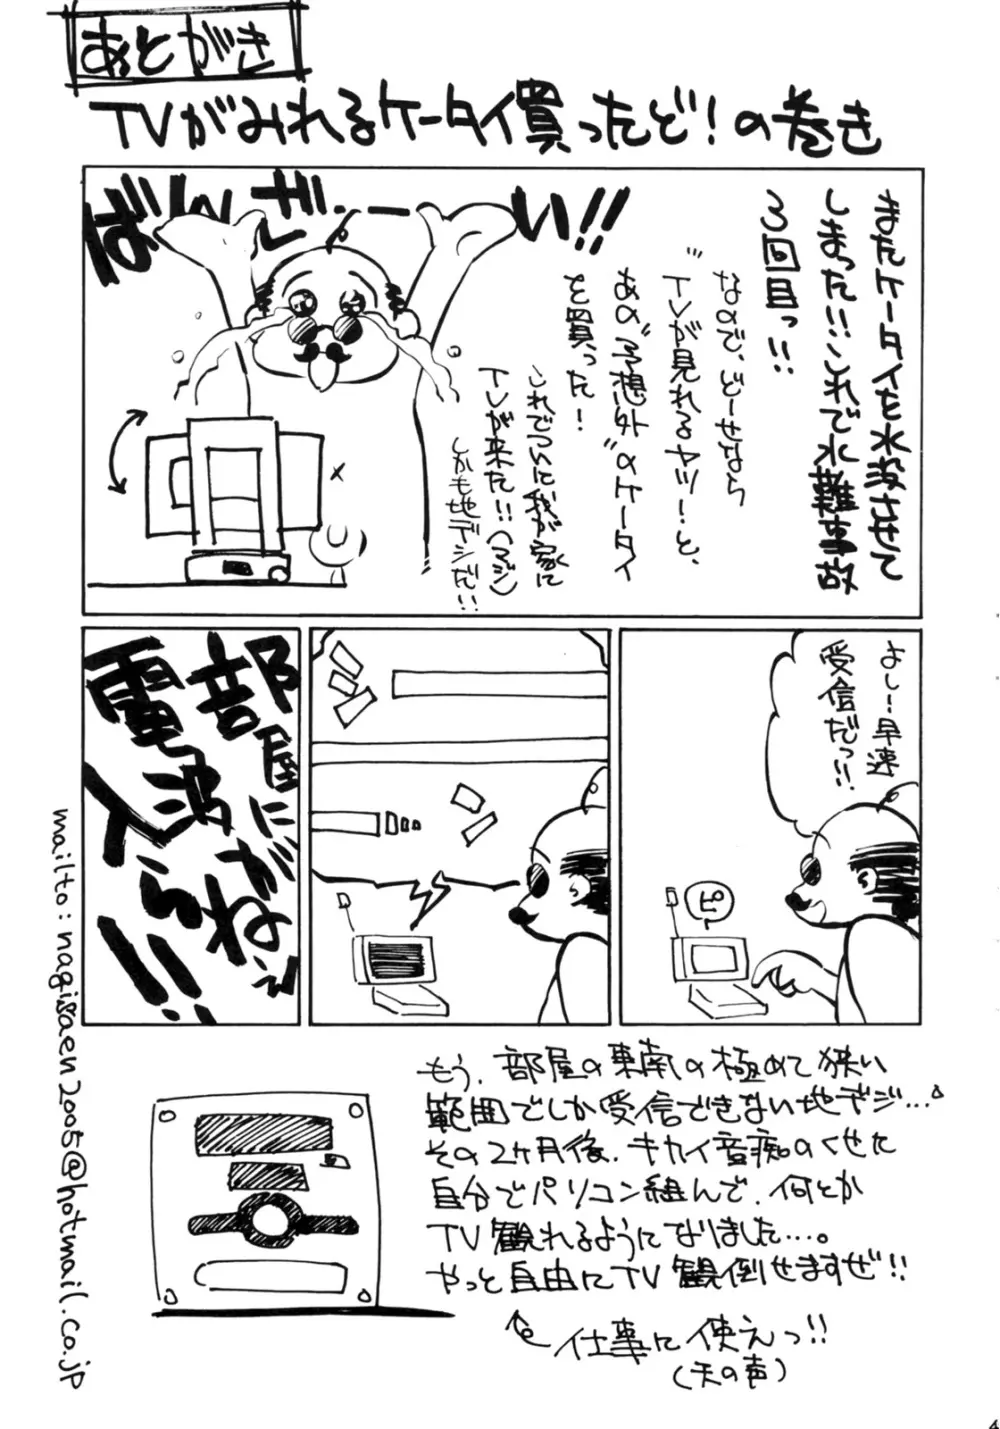 あとがき
TVがみれるケータイ買ったど!の巻き
ばんざーーい!!
またケータイを水没させて
しまった!!これで水難事故
3回目っ!!
なので、どーせなら
"TVが見れるヤツ!"と、
あの"予想外"のケータイ
を買った!
これでついに我が家に
TVが来た!!(マジ)
しかも地デジだ!!
よし!早速
受信だっ!!
ピ
部屋に
電波がねぇ
入らん!!!
もう、部屋の東南の極めて狭い
範囲でしか受信できない地デジ…。
その2ヶ月後、キカイ音痴のくせに
自分でパソコン組んで、何とか
TV観れるようになりました…。
やっと自由にTV観倒せますぜ!!
仕事に使えっ!!
(天の声)
mailto:nagisaen2005@hotmail.co.jp
4